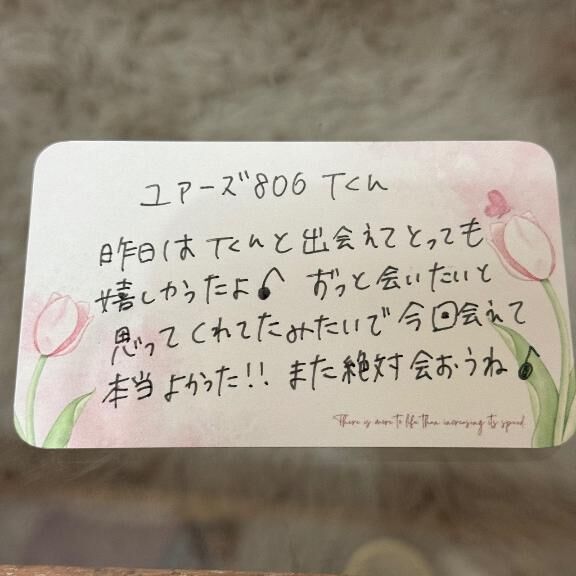 ユアーズ806 Tくん
昨日は Tくんと出会えてとっても
嬉しかったよ♪ ずっと会いたいと
思ってくれてたみたいで今回会えて
本当よかった!! また絶対会おうね♪
There is more to life than increasing its speed.